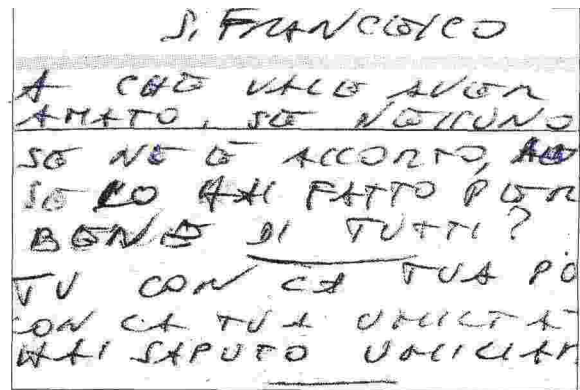 S. FRANCESCO
A CHE VALE AVER
AMATO, SE NESSUNO
SE NE È ACCORTO,
SE LO HAI FATTO PER
BENE DI TUTTI?
TU CON LA TUA PO
CON LA TUA UMILTÀ
HAI SAPUTO UMILIAR